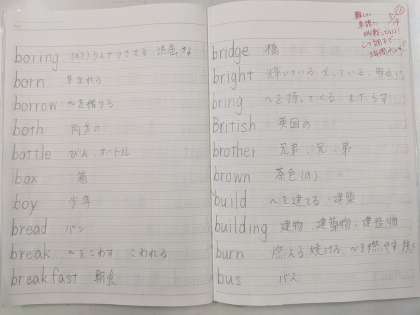 boring (人)をうんざりさせる 退屈な
born 生まれる
borrow ～を借りる
both 両方の
bottle びん、ボトル
box 箱
boy 少年
bread パン
break ～をこわす こわれる
breakfast 朝食
bridge 橋
bright 輝いている
bring ～を持ってくる、もたらす
British 英国の
brother 兄弟、兄、弟
brown 茶色(の)
build ～を建てる、建築
building 建物 建築物、建造物
burn 燃える 焼ける ～を燃やす
bus バス